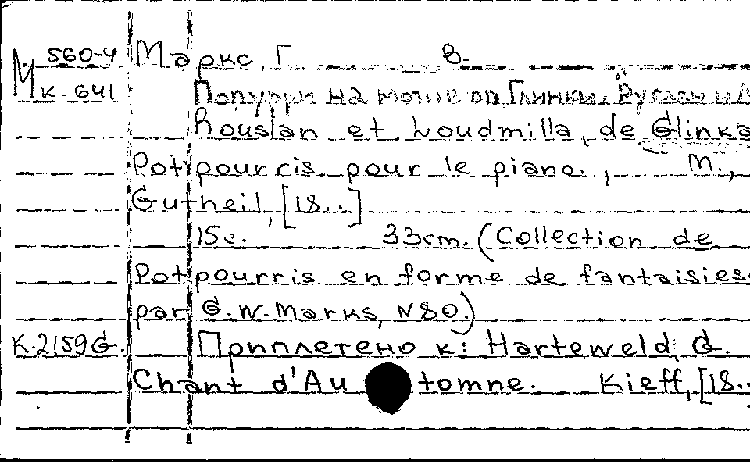 М 560-4 Маркс, Г В.
К-641 Попурри на мотив оп. Глинки. Руслан и
Rouslan et Loudmilla, de Glinka
Potpourris pour le piano., М.,
Gutheil, [18..]
15с. 33cm. (Collection de
Potpourris en forme de fantaisies
par G.W. Marks, N80.)
К.2159G. Приплетено к: Harteweld, G.
Chant d'Automne. Kieff, [18..